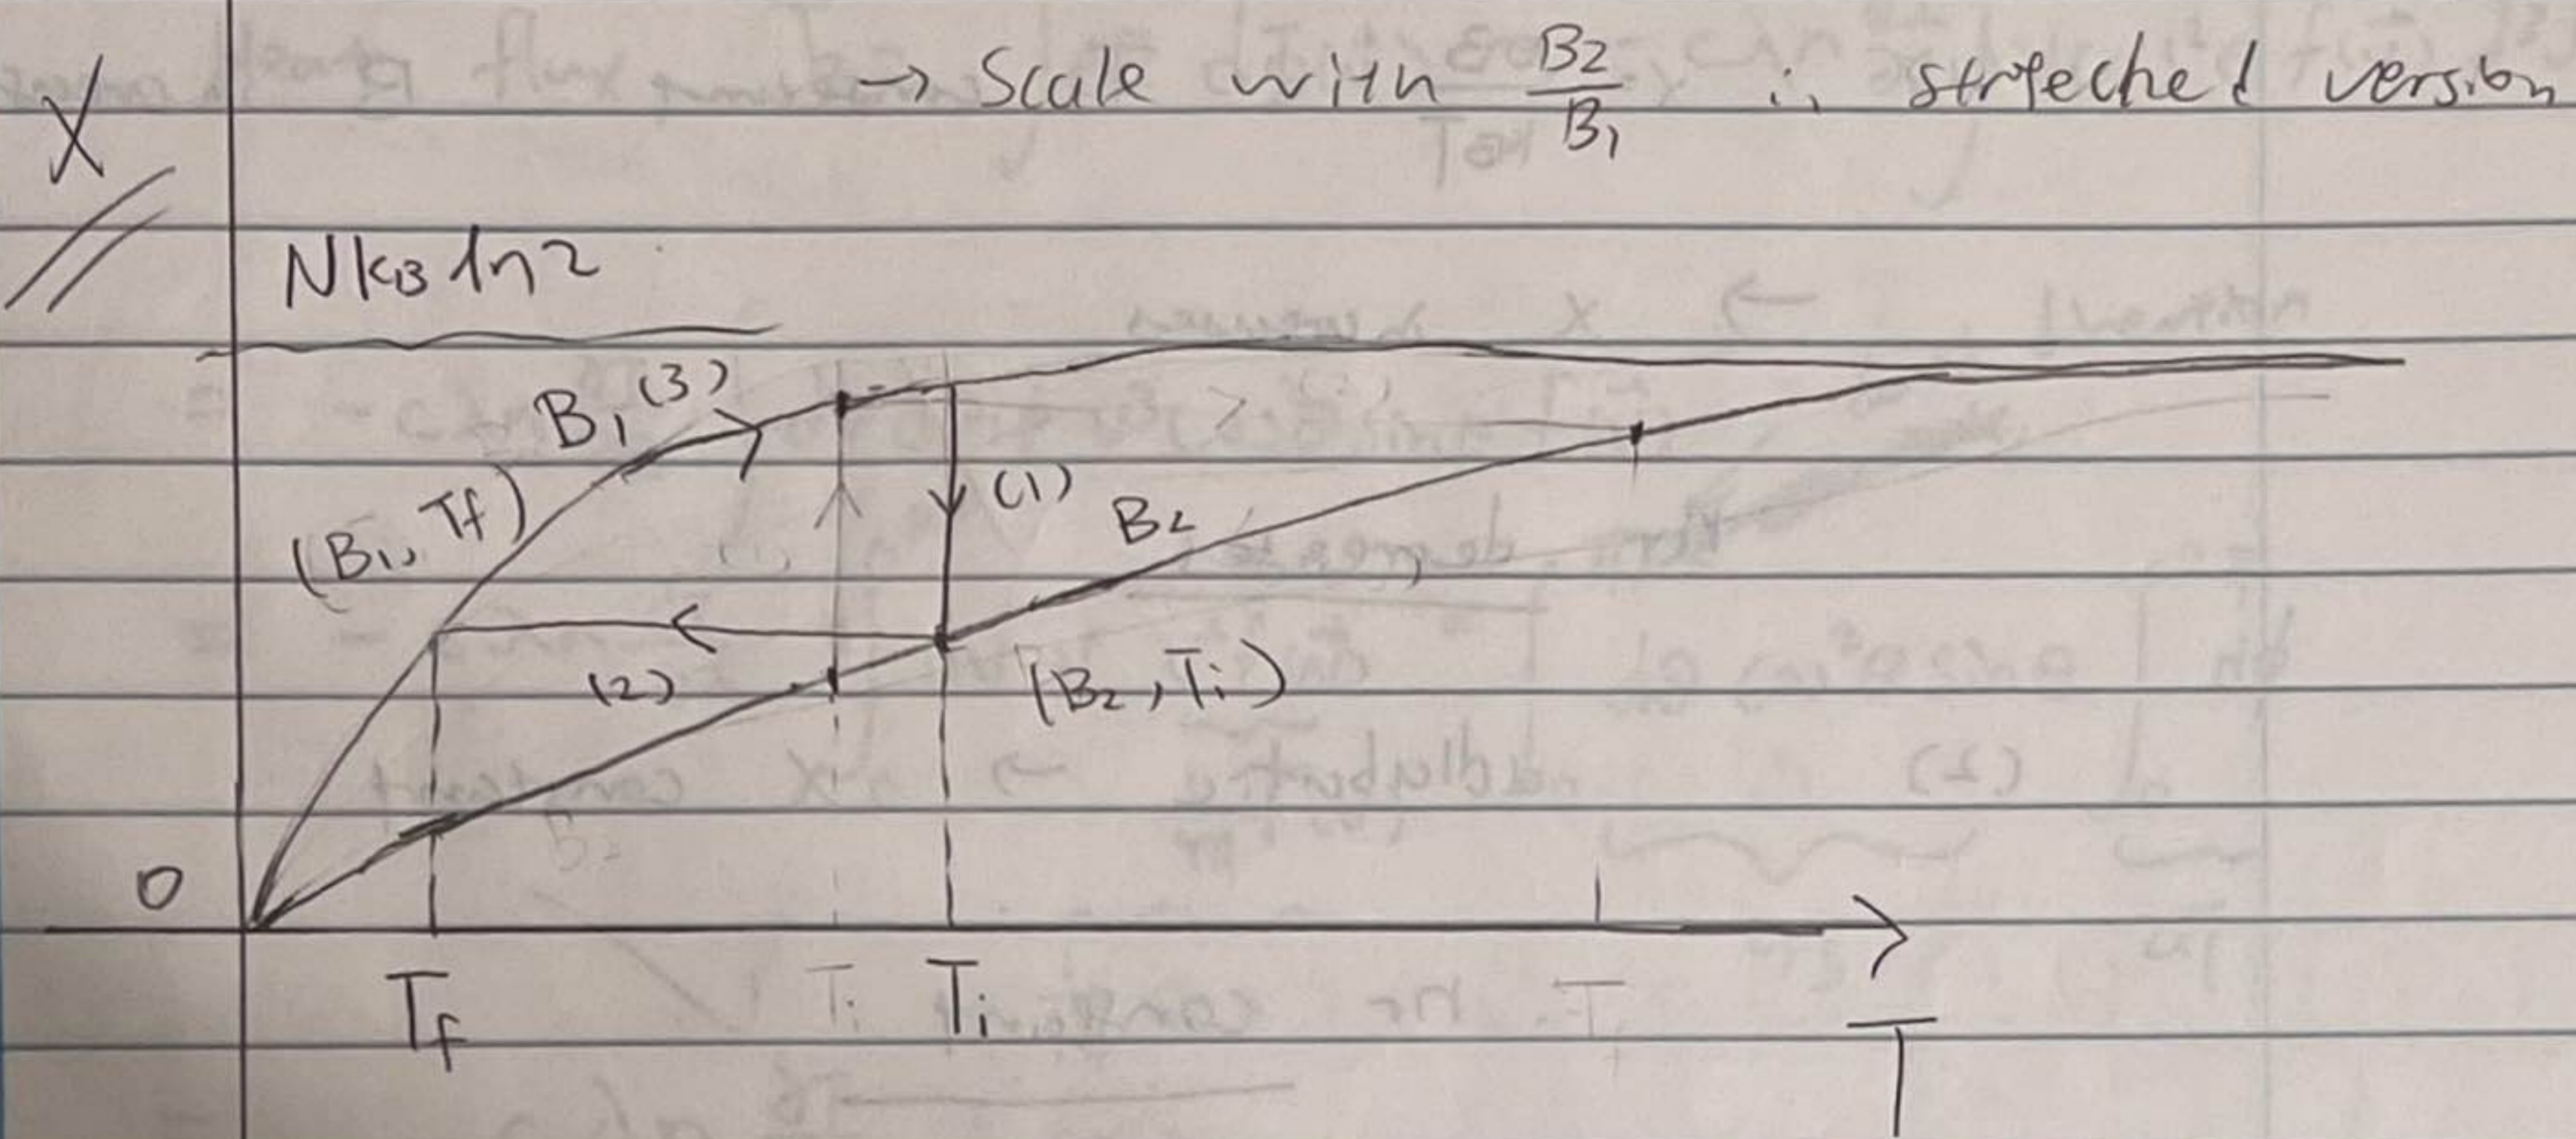 → Scale with B2/B1 is streched version
X
NkB ln 2
B1 (3)
(B1, Tf)
(1)
B2
(2)
(B2, Ti)
0
Tf Ti Ti
T